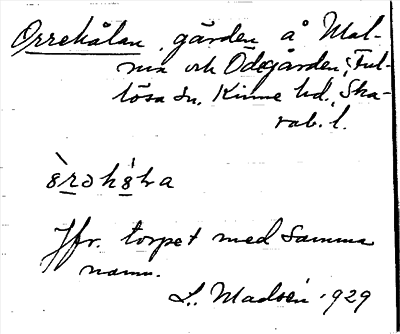 Orrekålan, gården å Mal-
ma och Ödegården, Ful-
lösa sn, Kinne hd, Ska-
rab. l.
Jfr. torpet med samma
namn.
L. Madsén 1929